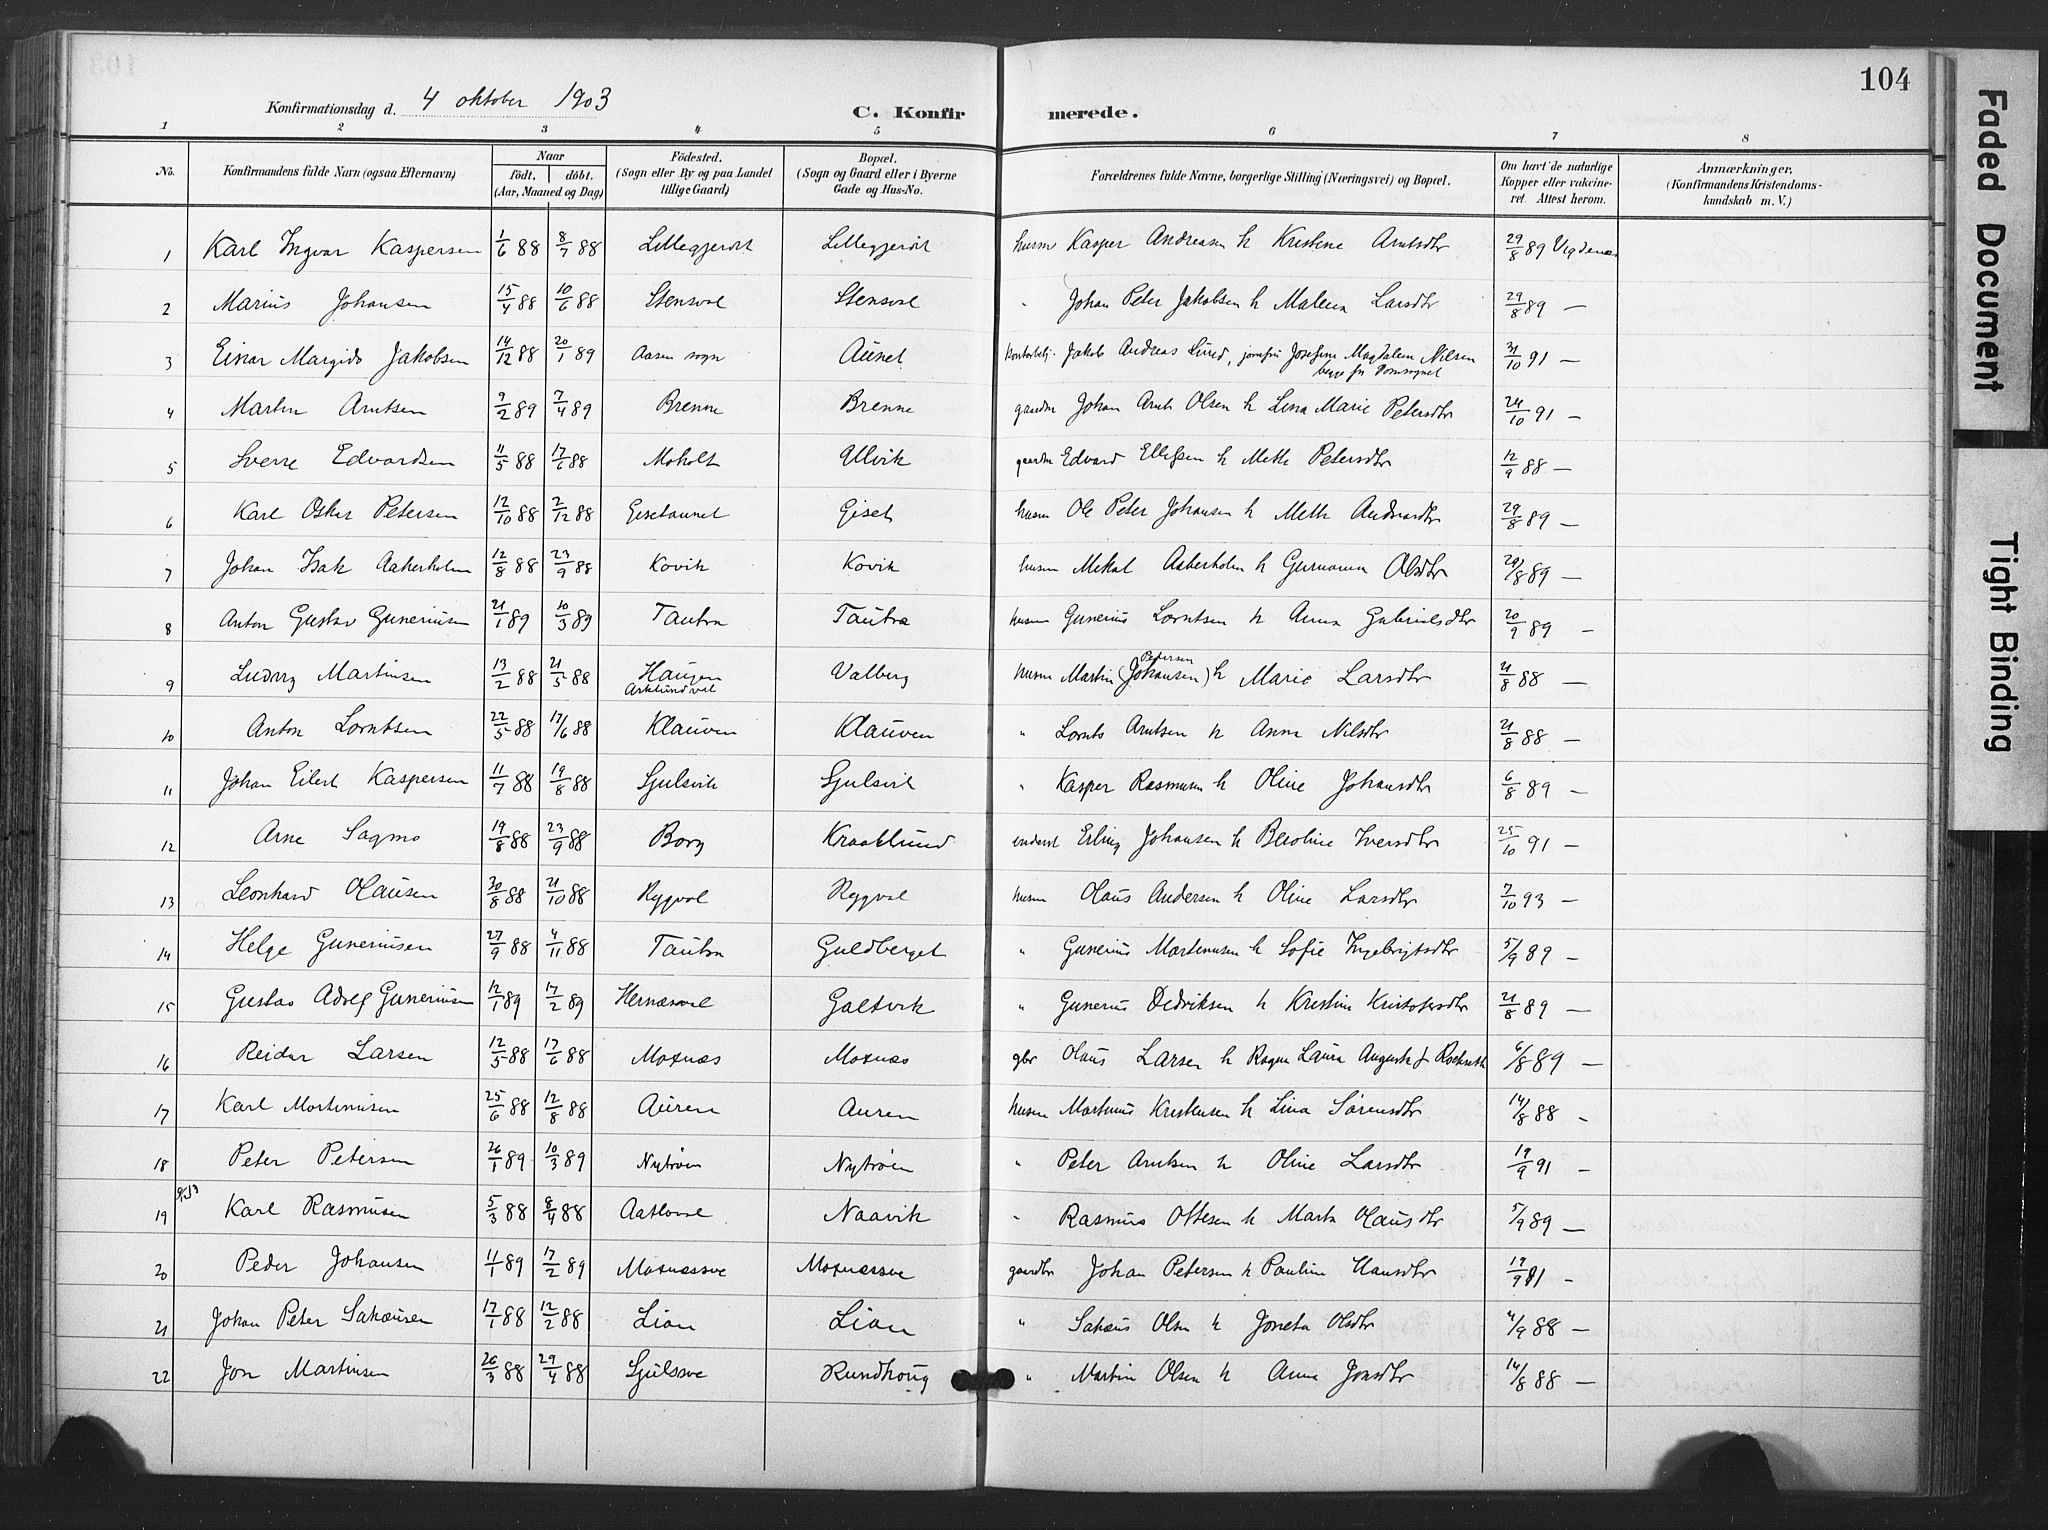 104
Konfirmationsdag d. 4 oktober 1903
C. Konfirmerede.
1 2 3 4 5 6 7 8
No. Konfirmandens fulde Navn (ogsaa Efternavn) Naar födt. döbt. (Aar, Maaned og Dag) Födested. (Sogn eller By og paa Landet tillige Gaard) Bopæl. (Sogn og Gaard eller i Byerne Gade og Hus-No. Forældrenes fulde Navne, borgerlige Stilling (Næringsvei) og Bopæl. Om havt de naturlige Kopper eller vakcineret. Attest herom. Anmærkninger. (Konfirmandens Kristendomskundskab m. V.)
1 Karl Ingvar Kaspersen 1/6 88 8/7 88 husm Kasper Andreasen h Kristine Arntsdtr 29/8 89
2 Marius Johansen 15/4 88 10/6 88 " Johan Peter Jakobsen h Malena Larsdtr 29/8 89 —
3 Einar Margido Jakobsen 14/12 88 20/1 89 Aasen sogn Aunet Jakob Andreas Lund, Josefine Magdalena Nilsen 31/10 91 —
4 Martin Arntsen 9/2 89 7/4 89 Brenne Brenne gaardm Johan Arnt Olsen h Lina Marie Petersdtr 24/10 91 —
5 Sverre Edvardsen 11/5 88 17/6 88 Moholt Ulvik gaardm Edvard Ellefsen h Meth Petersdtr 12/9 88 —
6 Karl Oskar Petersen 12/10 88 2/12 88 Gisetaunet Giset husm Ole Peter Johansen h Meth 29/8 89 —
7 Johan Isak Aakerholm 12/8 88 23/9 88 Kovik Kovik husm Mikal Aakerholm h Olsdtr 29/8 89 —
8 Anton Gustav Guneriusen 21/1 89 10/3 89 Tautra Tautra husm Gunerius Lorntsen h Anna Gabrielsdtr 20/9 89 —
9 Ludvig Martinsen 13/2 88 21/5 88 Haugen Valberg husm Martin (Johansen) Petersen h Marie Larsdtr 21/8 88 —
10 Anton Lorntsen 22/5 88 17/6 88 Klauven Klauven " Lornts Arntsen h Anna Nilsdtr 21/8 88 —
11 Johan Eilert Kaspersen 11/7 88 19/8 88 Gjulsvik Gjulsvik " Kasper Rasmusen h Oline Johansdtr 6/8 89 —
12 Arne Sagmo 19/8 88 23/9 88 Borg Kraaklund inderst Erling Johansen h Beroline Iversdtr 25/10 91 —
13 Leonhard Olausen 30/8 88 21/10 88 Rygvol Rygvol husm Olaus Andersen h Oline Larsdtr 7/10 93 —
14 Helge Guneriusen 27/9 88 4/11 88 Tautra Guldberget " Gunerius Martinusen h Sofie Ingebrigtsdtr 5/9 89 —
15 Gustav Adolf Guneriusen 12/1 89 17/2 89 Galtvik " Gunerius Didriksen h Kristine Kristofersdtr 21/8 89 —
16 Reidar Larsen 12/5 88 17/6 88 Moxnæs Moxnæs gbr Olaus Larsen h Laura 6/8 89 —
17 Karl Martinusen 25/6 88 12/8 88 Auren Auren husm Martinus Kristensen h Lina Sörensdtr 14/8 88 —
18 Peter Petersen 26/1 89 10/3 89 Nytrøen Nytrøen " Peter Arntsen h Oline Larsdtr 19/9 91 —
19 Karl Rasmusen 5/3 88 8/4 88 Naavik " Rasmus Ottesen h Marta Olausdtr 5/9 89 —
20 Peder Johansen 11/1 89 17/2 89 Moxnæssve Moxnæssve gaardbr Johan Petersen h Pauline Hansdtr 19/9 91 —
21 Johan Peter Sakæusen 17/1 88 12/2 88 Lian Lian " Sakæus Olsen h Joneta Olsdtr 4/9 88 —
22 Jon Martinsen 26/3 88 29/4 88 Gjulssve Rundhaug " Martin Olsen h Anna Jonsdtr 14/8 88 —
Faded Document
Tight Binding